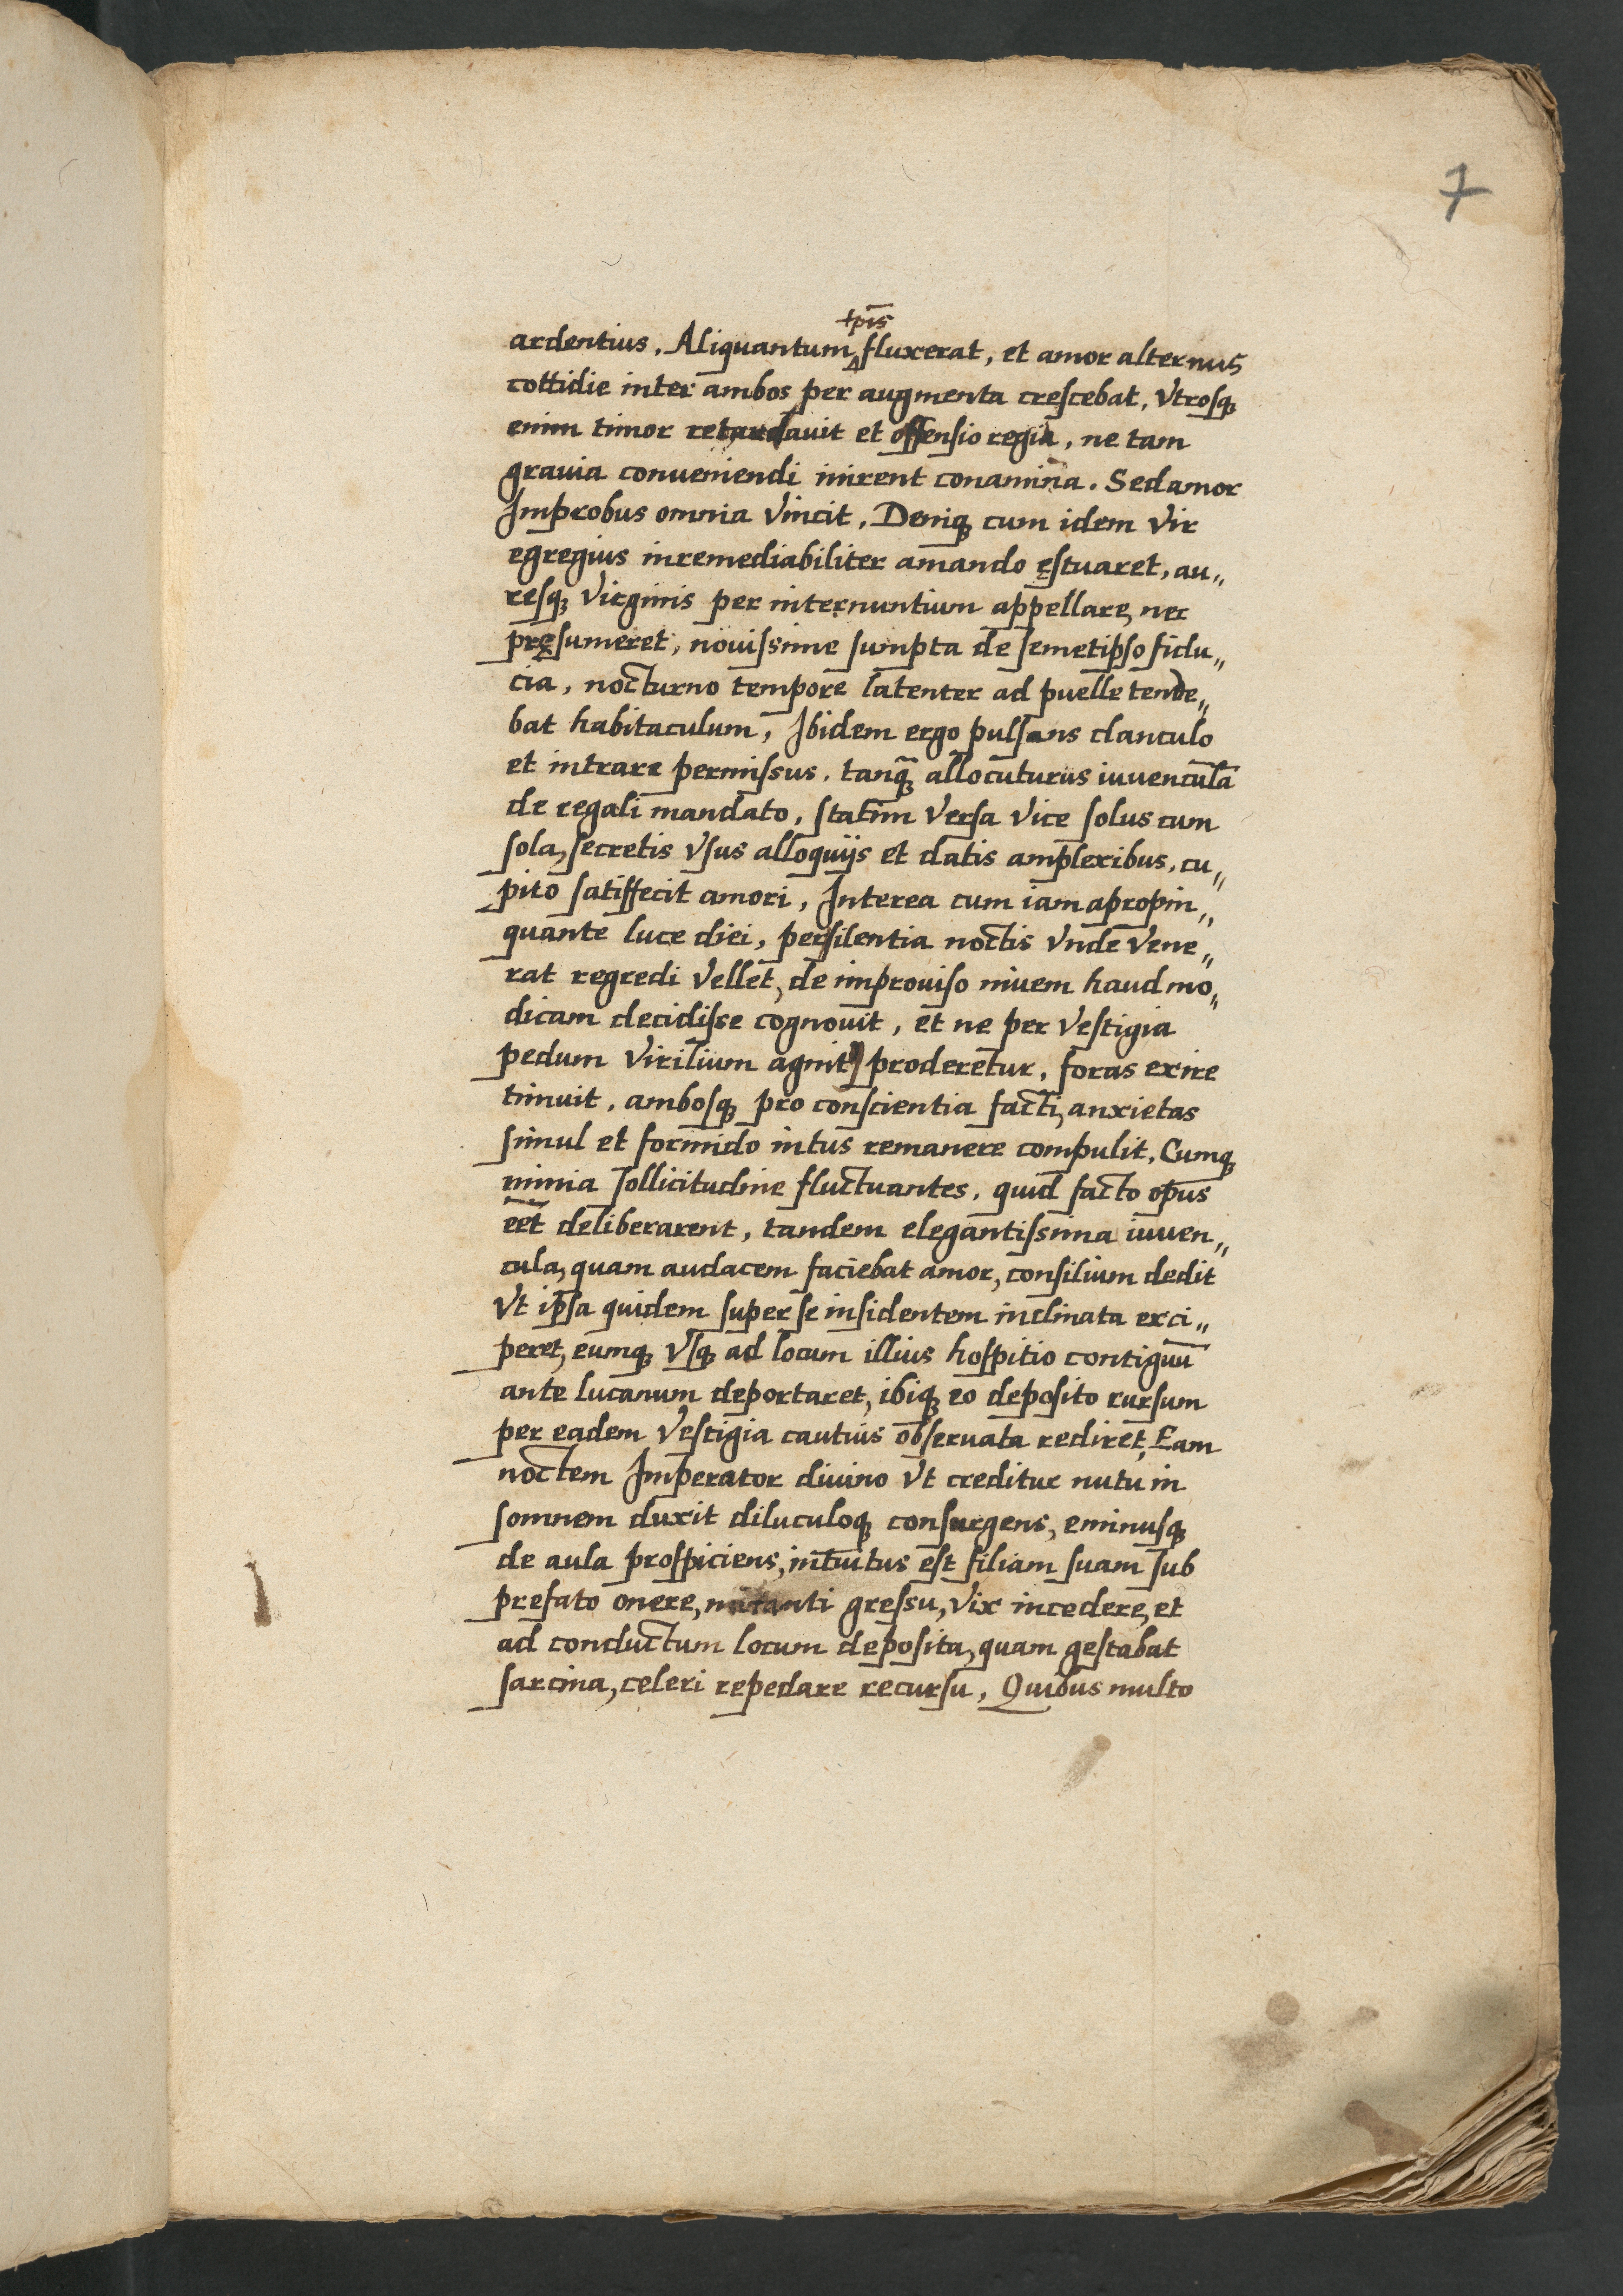 7
tp̄is
ardentius. Aliquantum fluxerat, et amor alternus
cottidie inter ambos per augmenta crescebat, vtrosqꝫ
enim timor retardauit et offensio regia, ne tam
grauia conueniendi inirent conamina. Sed amor
Improbus omnia vincit, Deniqꝫ cum idem vir
egregius inremediabiliter amando ęstuaret, au„
resqꝫ virginis per internuntium appellare, nec
pręsumeret, nouissime sumpta de semetipso fidu„
cia, nocturno tempore latenter ad puelle tende„
bat habitaculum, Ibidem ergo pulsans clanculo
et intrare permissus, tanq̃ꝫ allocuturus iuuenculā
de regali mandato, statim versa vice solus cum
sola, secretis vsus alloquijs et datis amplexibus, cu„
pito satiffecit amori, Interea cum iam apropin„
quante luce diei, per silentia noctis vnde vene„
rat regredi vellet, de improuiso niuem haud mo„
dicam decidisse cognouit, et ne per vestigia
pedum virilium agnitꝰ proderetur, foras exire
timuit, ambosqꝫ pro conscientia facti, anxietas
simul et formido intus remanere compulit, Cumqꝫ
nimia sollicitudine fluctuantes, quid facto opus
eēt deliberarent, tandem elegantissima iuuen„
cula, quam audacem faciebat amor, consilium dedit
vt ipsa quidem super se insidentem inclinata exci„
peret, eumqꝫ vsqꝫ ad locum illius hospitio contiguū
ante lucanum deportaret, ibiqꝫ eo deposito rursum
per eadem vestigia cautius obseruata rediret, Eam
noctem Imperator diuino vt creditur nutu in
somnem duxit diluculoqꝫ consurgens, eminusqꝫ
de aula prospiciens, intuitus est filiam suam sub
prefato onere, nutanti gressu, vix incedere, et
ad conductum locum deposita, quam gestabat
sarcina, celeri repedare recursu, Quibus multo